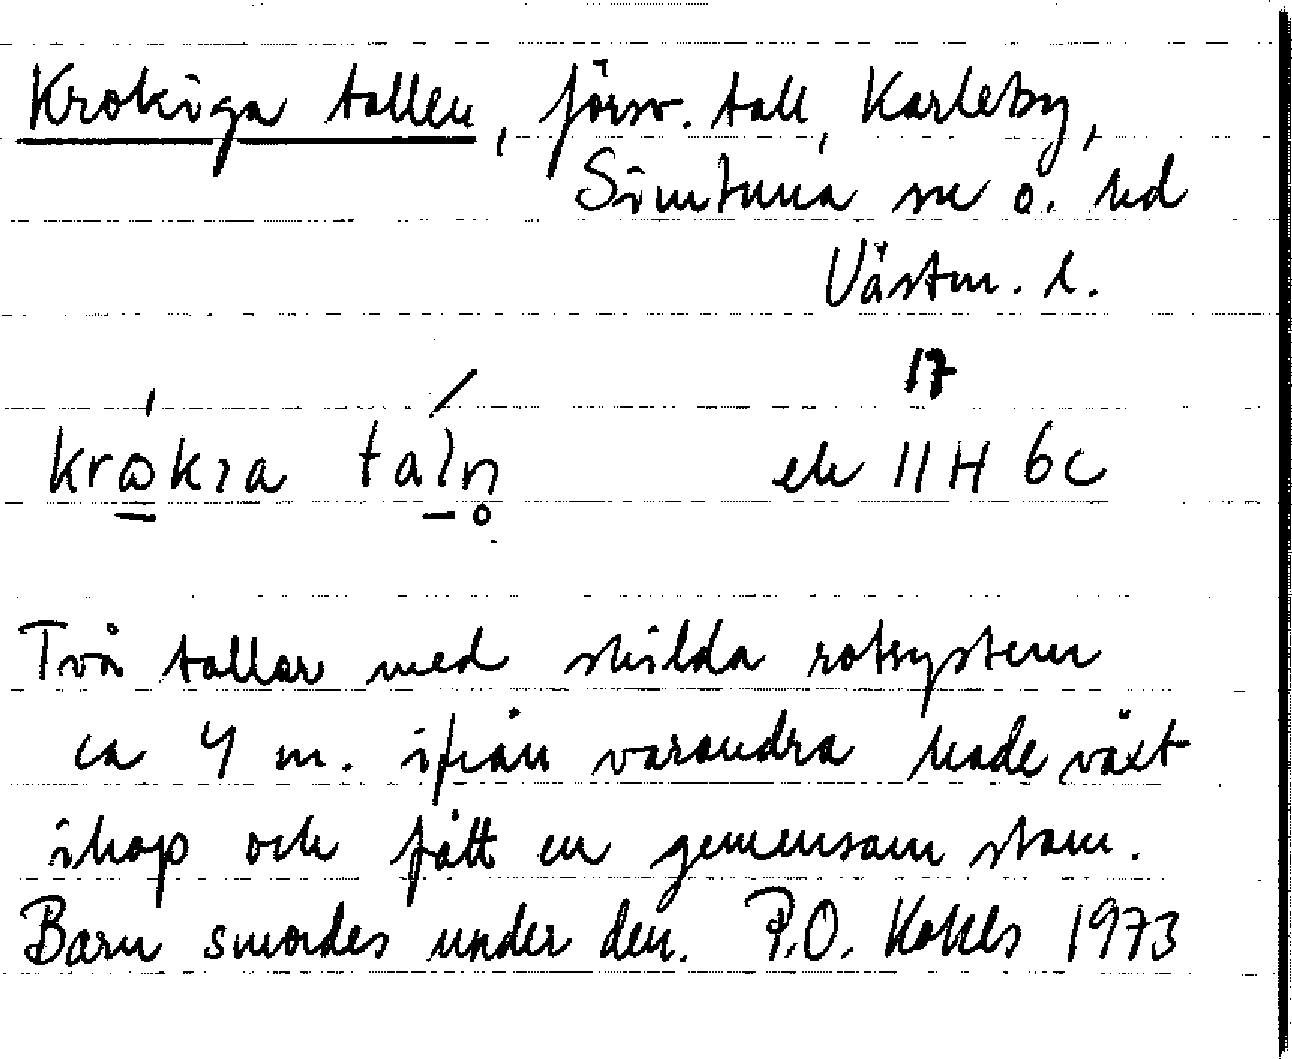 Krokiga tallen, försv. tall, Karleby,
Simtuna sn o. hd
Västm. l.
17
ek 11 H 6c
Två tallar med skilda rotsystem
ca 4 m. ifrån varandra hade växt
ihop och fått en gemensam stam.
Barn smordes under den. P.O. 1973